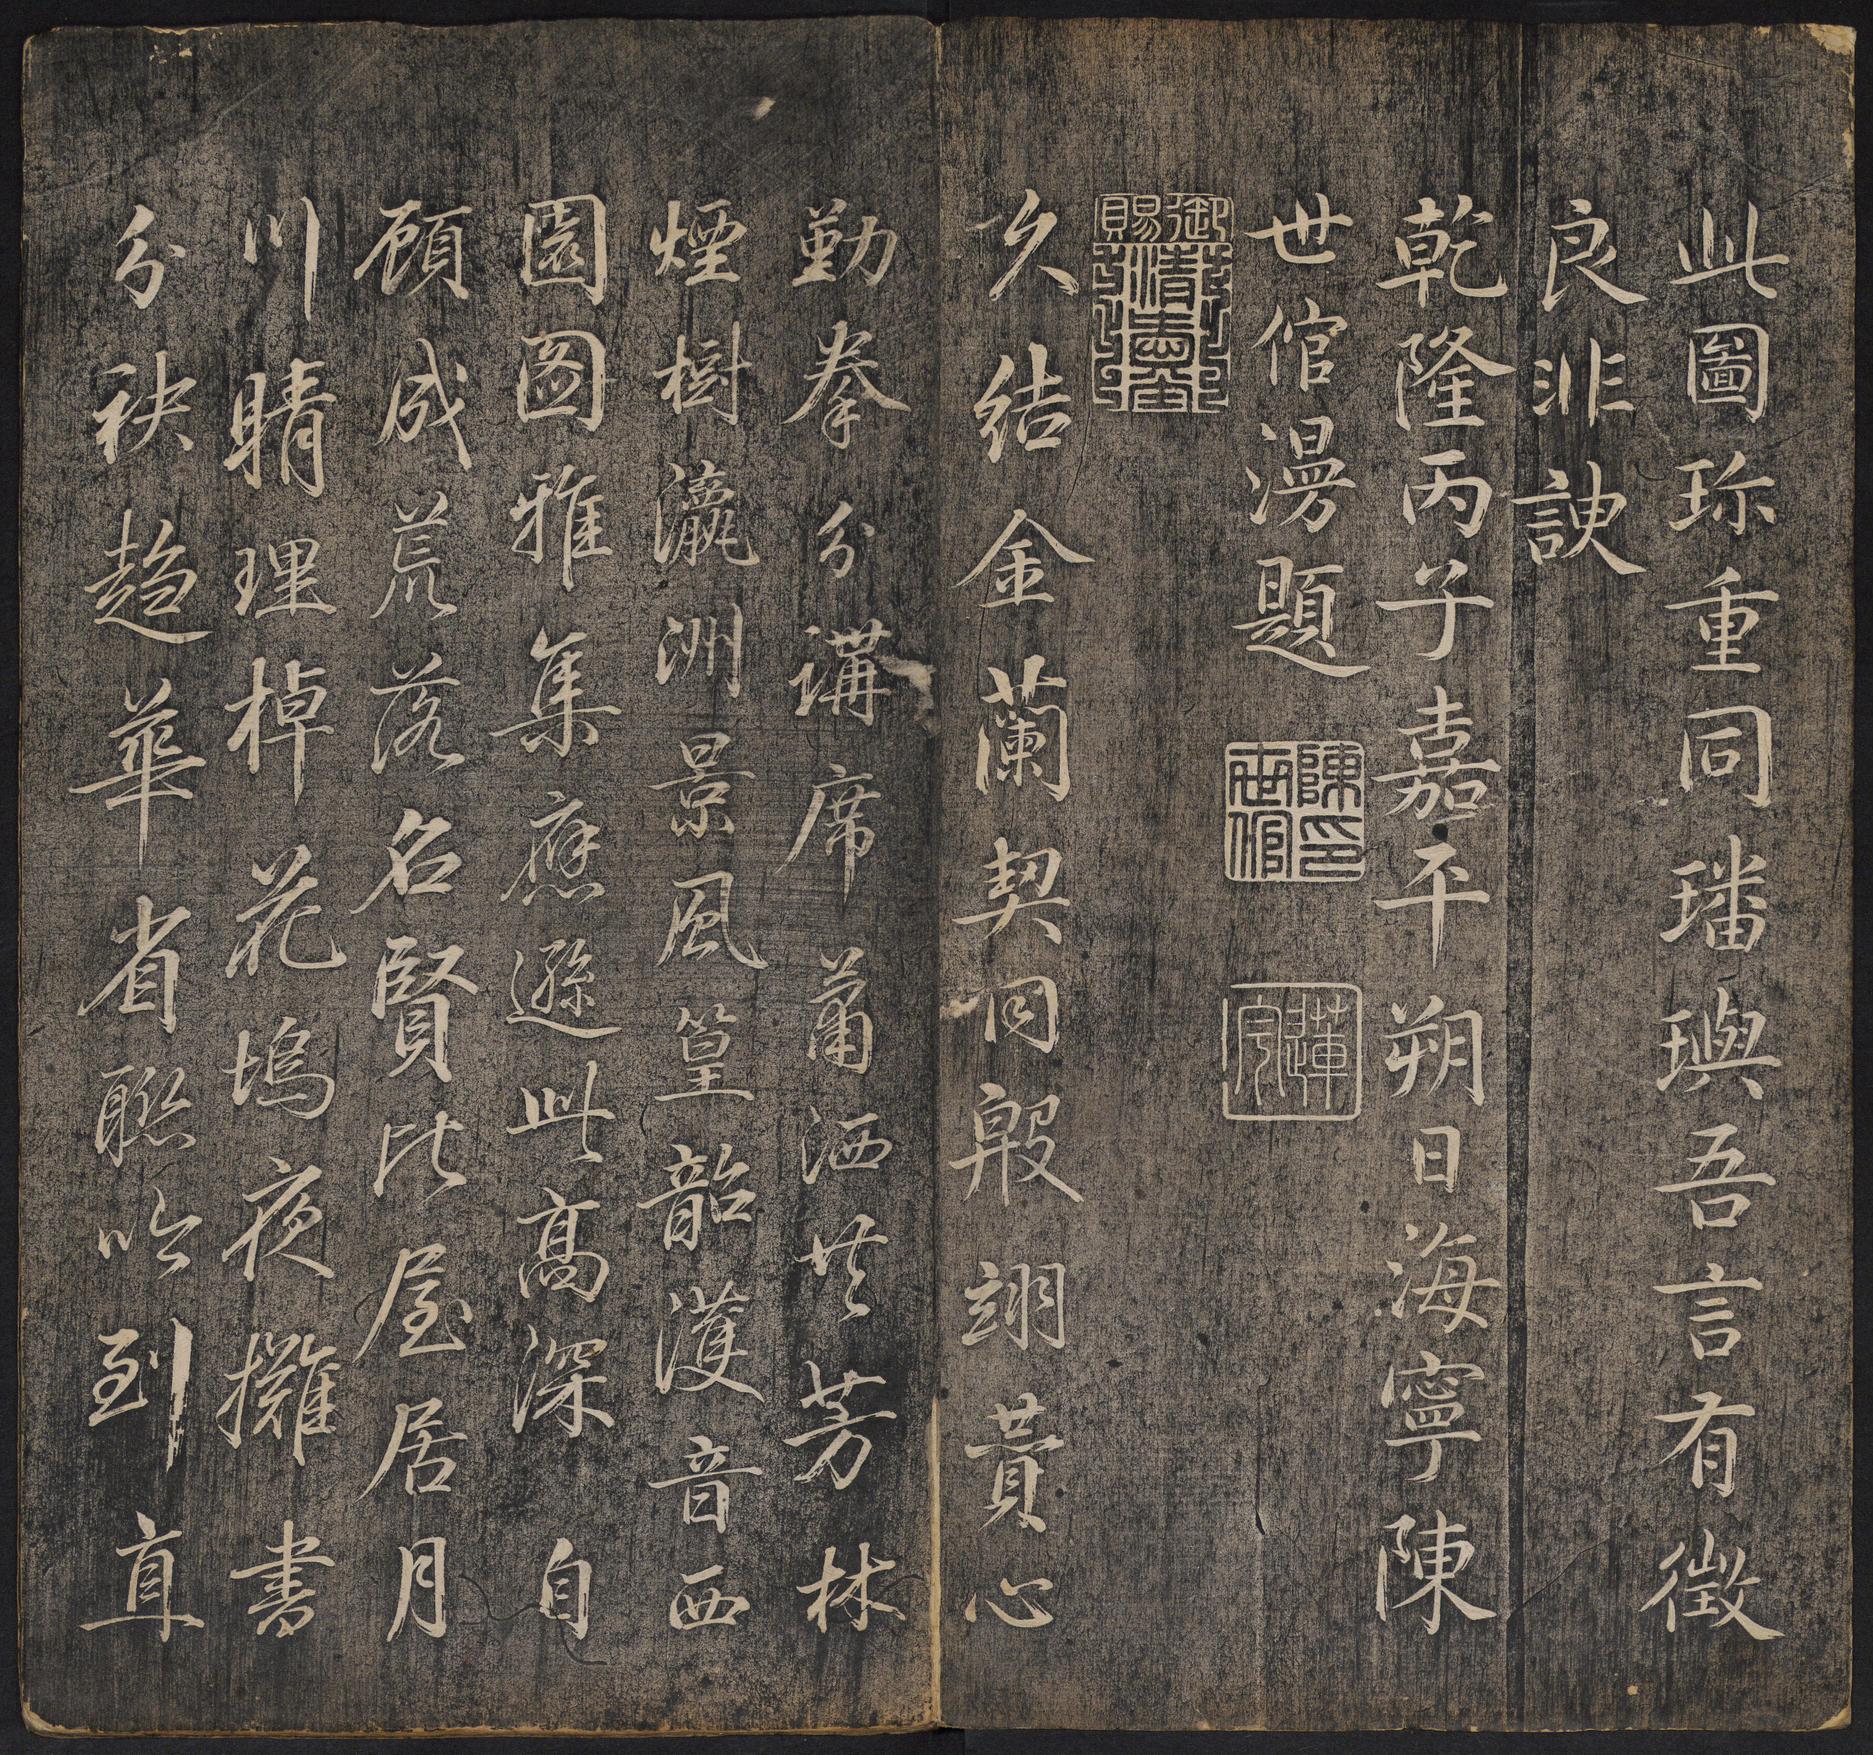 此圖珎重同璠璵吾言有徵
良非諛
乾隆丙子嘉平朔日海寧陳
世倌漫題
陳印世倌
蓮宇
御賜
久結金蘭契同殷翊贊心
勤拳分講席蕭洒共芳林
煙樹瀛洲景風篁韶濩音西
園圖雅集應遜此高深自
顧成荒落名賢比屋居月
川晴理棹花塢夜攤書
分袂趍華省聯吟到直